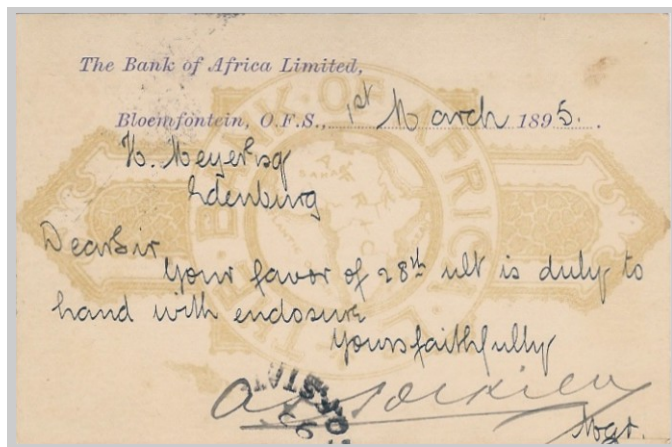 The Bank of Africa Limited,
Bloemfontein, O.F.S., 1st March 1895.
H. Meyer Esq
Edenburg
Dear Sir
Your favor of 28th ult is duly to
hand with enclosure
Yours faithfully
Mgr.
THE BANK OF AFRICA L